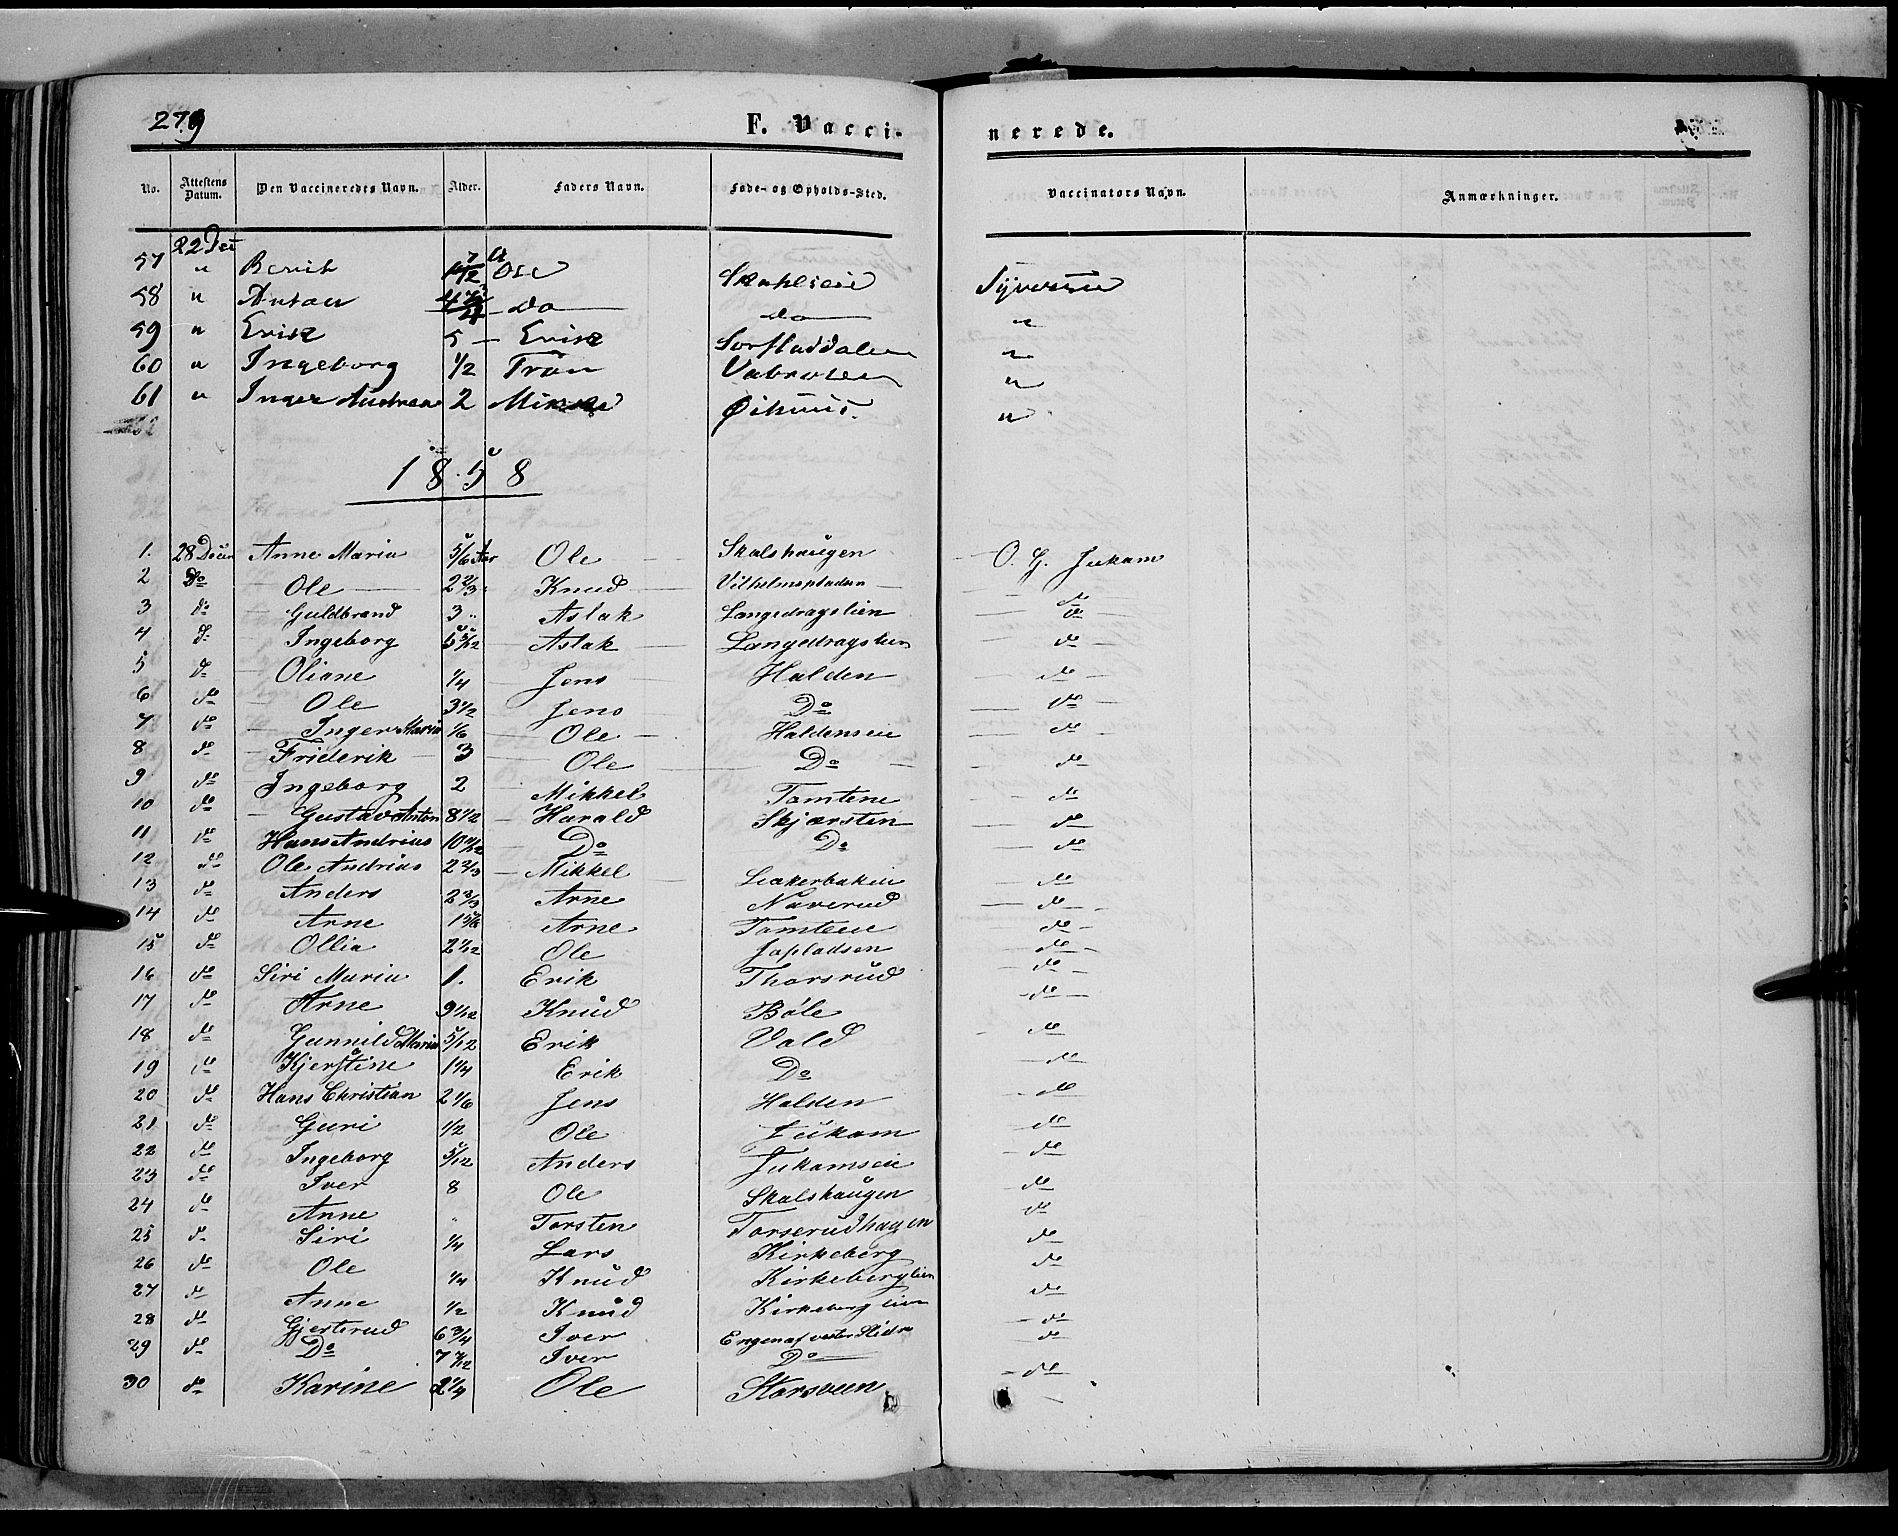 279
F. Vacci-
nerede.
No. Attestens Datum. Den Vaccineredes Navn. Alder. Faders Navn. Føde- og Opholds-Sted. Vaccinators Navn. Anmærkninger.
22 Dec
57 " Berit Ole
58 " Anton do do "
59 " Erik 5 Erik "
60 " Ingeborg 1/2 Tron "
61 " Inger Andrea 2 "
1858
1. 28 Anne Maria 5/6 Aar Ole Skalshaugen O. G. Jukam
2 Do Ole 2 2/3 Knud Vilhelmspladsen do
3 do Guldbrand 3 " Aslak Langedragslien do
4 do Ingeborg 5 5/12 Aslak Langedragslien do
5 do Oliane 1/4 Jens Halden do
6 do Ole 3 1/2 Jens Do do
7 do Inger Maria 1/6 Ole Haldenseie do
8 do Friderik 3 Ole Do do
9 do Ingeborg 2 Mikkel Tomtene do
10 do Gustav Anton 8 1/2 Harald Skjærsten do
11 do Hans Andrias Do Do do
12 do Ole Andrias 2 2/3 Mikkel do
13 do Anders 2 2/3 Arne Naverud do
14 do Arne Arne Tomtene do
15 do Ollia 2 1/12 Ole do
16 do Siri Maria 1. Erik Thorsrud do
17 do Arne 9/12 Knud Bøle do
18 do Gunnild Maria 5/12 Erik Vold do
19 do Kjerstine 1 1/4 Erik Do do
20 do Hans Christian 2 1/6 Jens Halden do
21 do Guri 1/2 Ole Jukam do
22 do Ingeborg 5/12 Anders Jukamseie do
23 do Iver 8 Ole Skalshaugen do
24 do Anne " Torsten Torserudhagen do
25 do Siri 1/4 Lars Kirkeberg do
26 do Ole 1/4 Knud Kirkeberglien do
27 do Anne 1/2 Knud Kirkeberglien do
28 do Gjertrud 6 3/4 Iver Engen af vester Slidre do
29 do Do 7 7/12 Iver Do do
30 do Karine 2 1/4 Ole Storsveen do